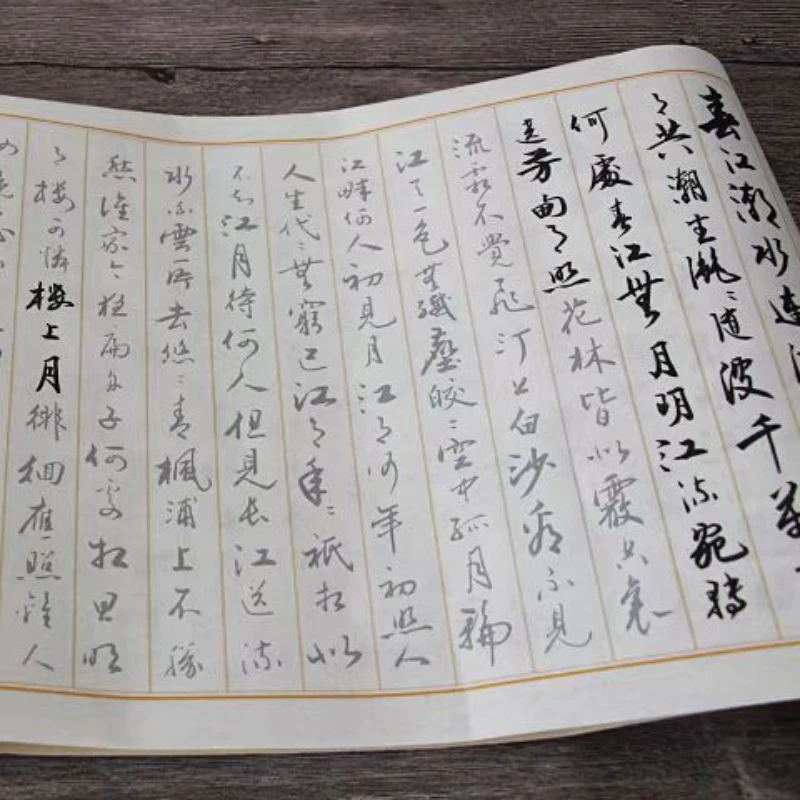 春江潮水連海
月共潮生灩〻隨波千萬
何處春江無月明江流宛轉
遶芳甸月照花林皆似霰空裏
流霜不覺飛汀上白沙看不見
江天一色無纖塵皎〻空中孤月輪
江畔何人初見月江月何年初照人
人生代〻無窮已江月年〻祇相似
不知江月待何人但見長江送流
水白雲一片去悠〻青楓浦上不勝
愁誰家今夜扁舟子何處相思明
月樓可憐樓上月徘徊應照離人